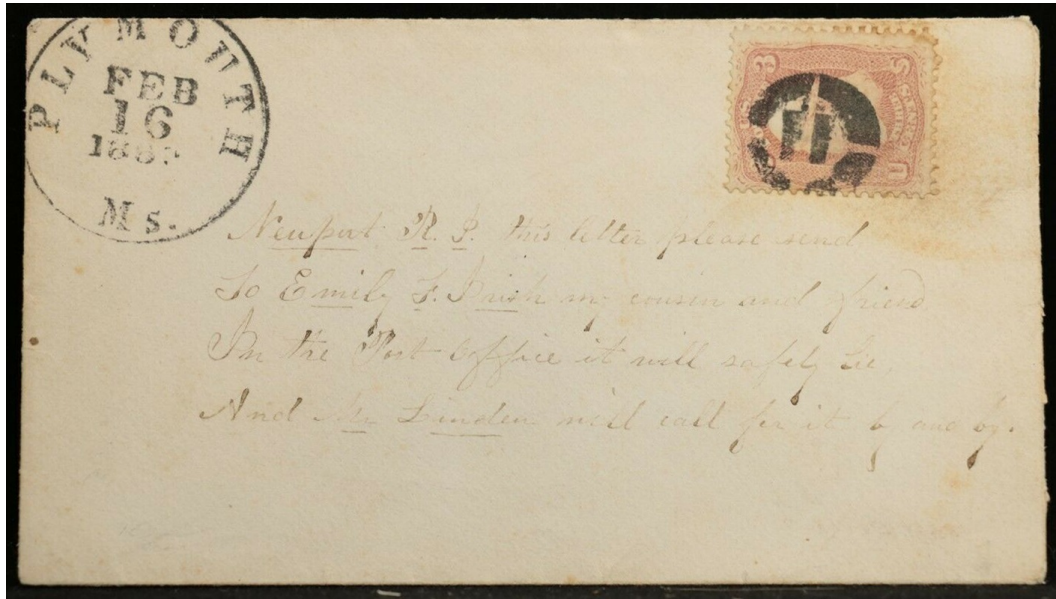 PLYMOUTH
FEB
16
Ms.
3
Newport R. I. this letter please send
To Emily F. my cousin and friend
In the Post Office it will safely lie,
And Mr Linden will call for it by and by.